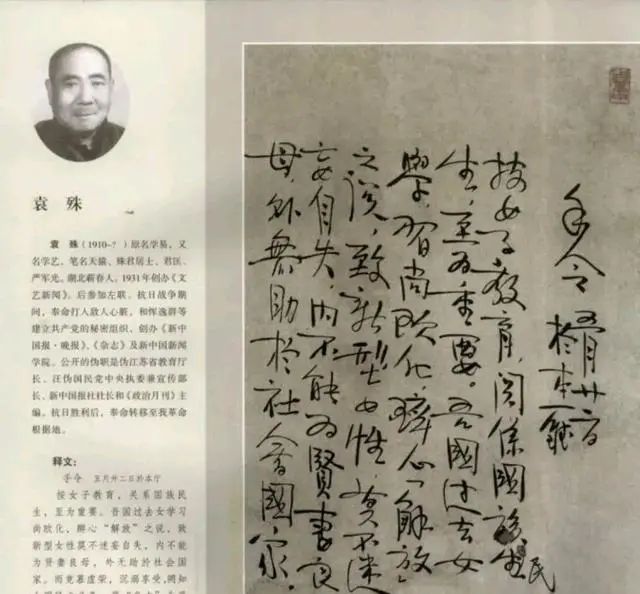 袁 殊
袁 殊（1910-?）原名学易，又
名学艺、笔名天猿、殊君居士、君匡、
严军光。湖北蕲春人，1931年创办《文
艺新闻》。后参加左联。抗日战争期
间，奉命打人敌人心脏，和恽逸群等
建立共产党的秘密组织、创办《新中
国报·晚报》、《杂志》及新中国新闻
学院。公开的伪职是伪江苏省教育厅
长、汪伪国民党中央执委兼宣传部
长、新中国报社社长和《政治月刊》主
编。抗日胜利后，奉命转移至我革命
根据地。
释文：
手令 五月廿二日於本厅
按女子教育，关系国族民
生，至为重要。吾国过去女学习
尚欧化，醉心“解放”之说，致
新型女性莫不迷妄自失，内不能
为贤妻良母，外无助于社会国
家。而竞慕虚荣，沉溺享受，
手令
五月廿二日
於本廳
按女子教育，関係國族民
生，至為重要。吾國過去女
學，習尚欧化，醉心「解放」
之說，致新型女性，莫不迷
妄自失，内不能為賢妻良
母，外無助於社會國家。